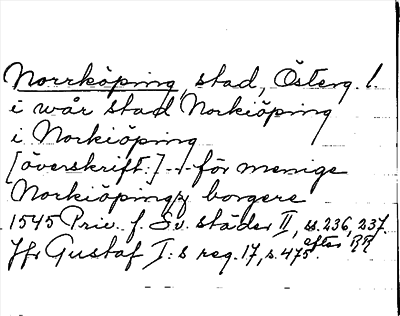 Norrköping, stad, Österg. l.
i wår stad Norkiöping
i Norkiöping
[överskrift:] - för menige
Norkiöpingz borgere
1545 Priv. f. Sv. städer II, ss. 236, 237.
efter RR
Jfr Gustaf I:s reg. 17, s. 475